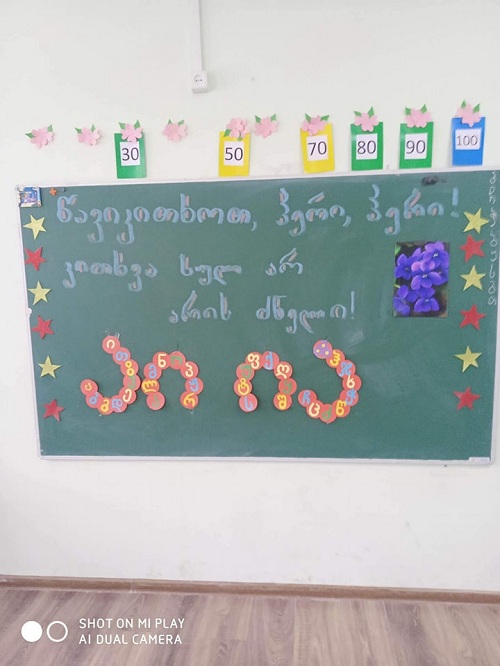 30 50 70 80 90 100
წავიკითხოთ, ჰერი, ჰერი!
კითხვა სულ არ
არის ძნელი!
აი ია
SHOT ON MI PLAY
AI DUAL CAMERA